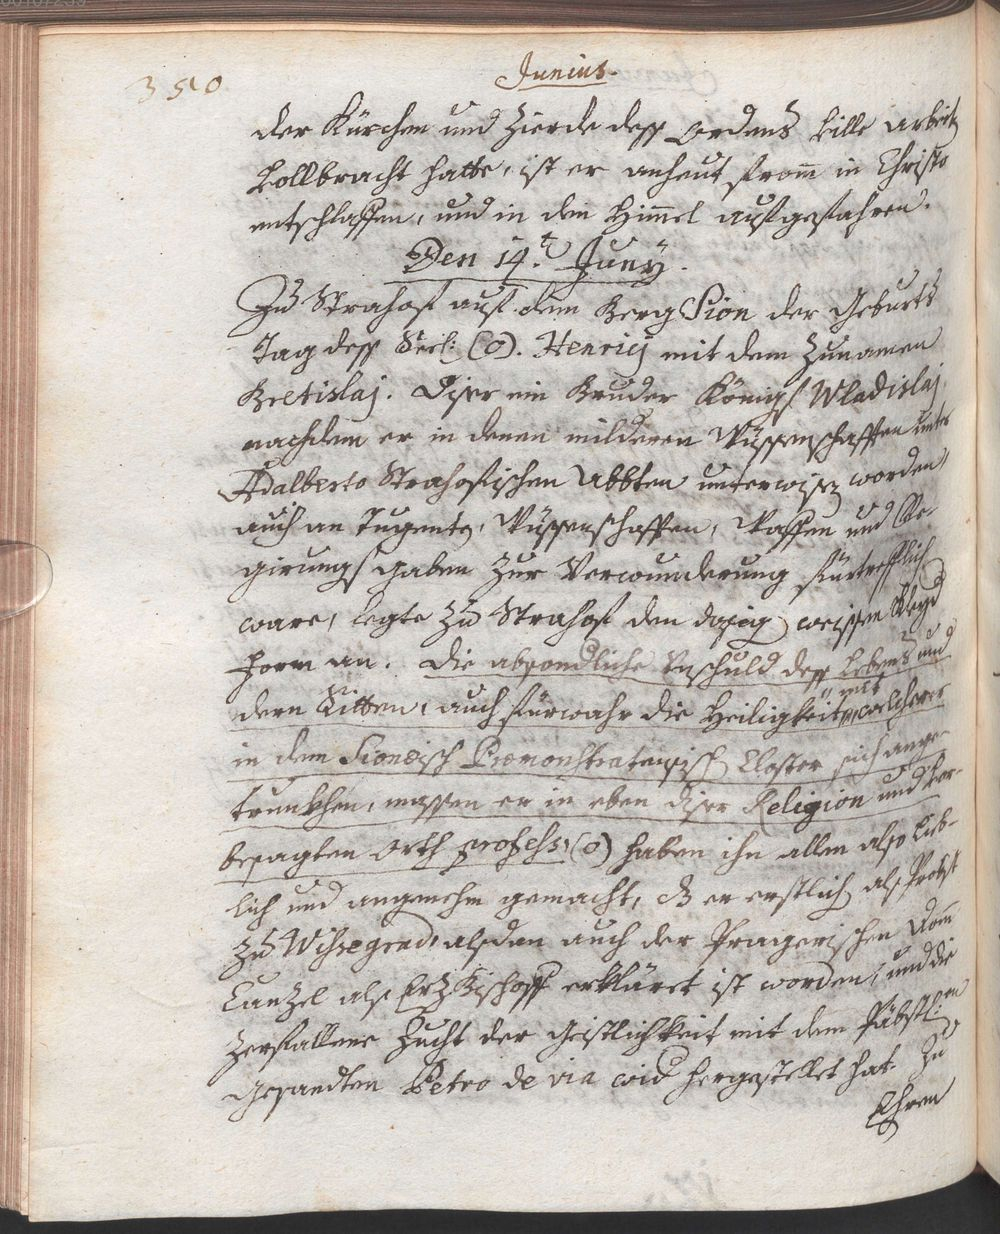 350
Junius.
der Kürchen und Zierde dess Ordens Ville arbeit
Vollbracht hatte, ist er anheut from̄ in Christo
entschlaffen, und in den Him̄el aufgefahren.
Den 14.t Junÿ.
Zu Strahof auf dem Berg Sion der Geburts
Tag dess Seel: (o). Henricj mit dem Zunamen
Bretislaj. Diser ein Bruder Königs Wladislaj,
nachdem er in denen milderen Wüssenschafften unter
Adalberto Strahofischen Abbten unterwisen worden,
auch an Tugenten, Wüssenschafften, Waffen und Re-
girungs gaben zur Verwunderung fürtrefflich
ware, legte zu Strahof den dasig weissen Kleyd
form an. Die absonderliche Unschuld dess Lebens und
dern Sitten, auch fürwahr die Heiligkeit, mit welcherer
in dem Sionæisch Præmonstratensisch Closter sich ange-
trunckhen, massen er in eben diser Religion und vor-
besagten Orth profess, (o) haben ihn allen also lieb-
lich und angenehm gemacht, dz er erstlich als Probst
zu Wissegrad, alsdan auch der Pragerischen Dom
Canzel als Erz Bischoff erkläret ist worden, und die
zerfallene Zucht der Geistlichkeit mit dem Päbstl:en
Gesandten Petro de via wid hergestellet hat. Zu
Ehren